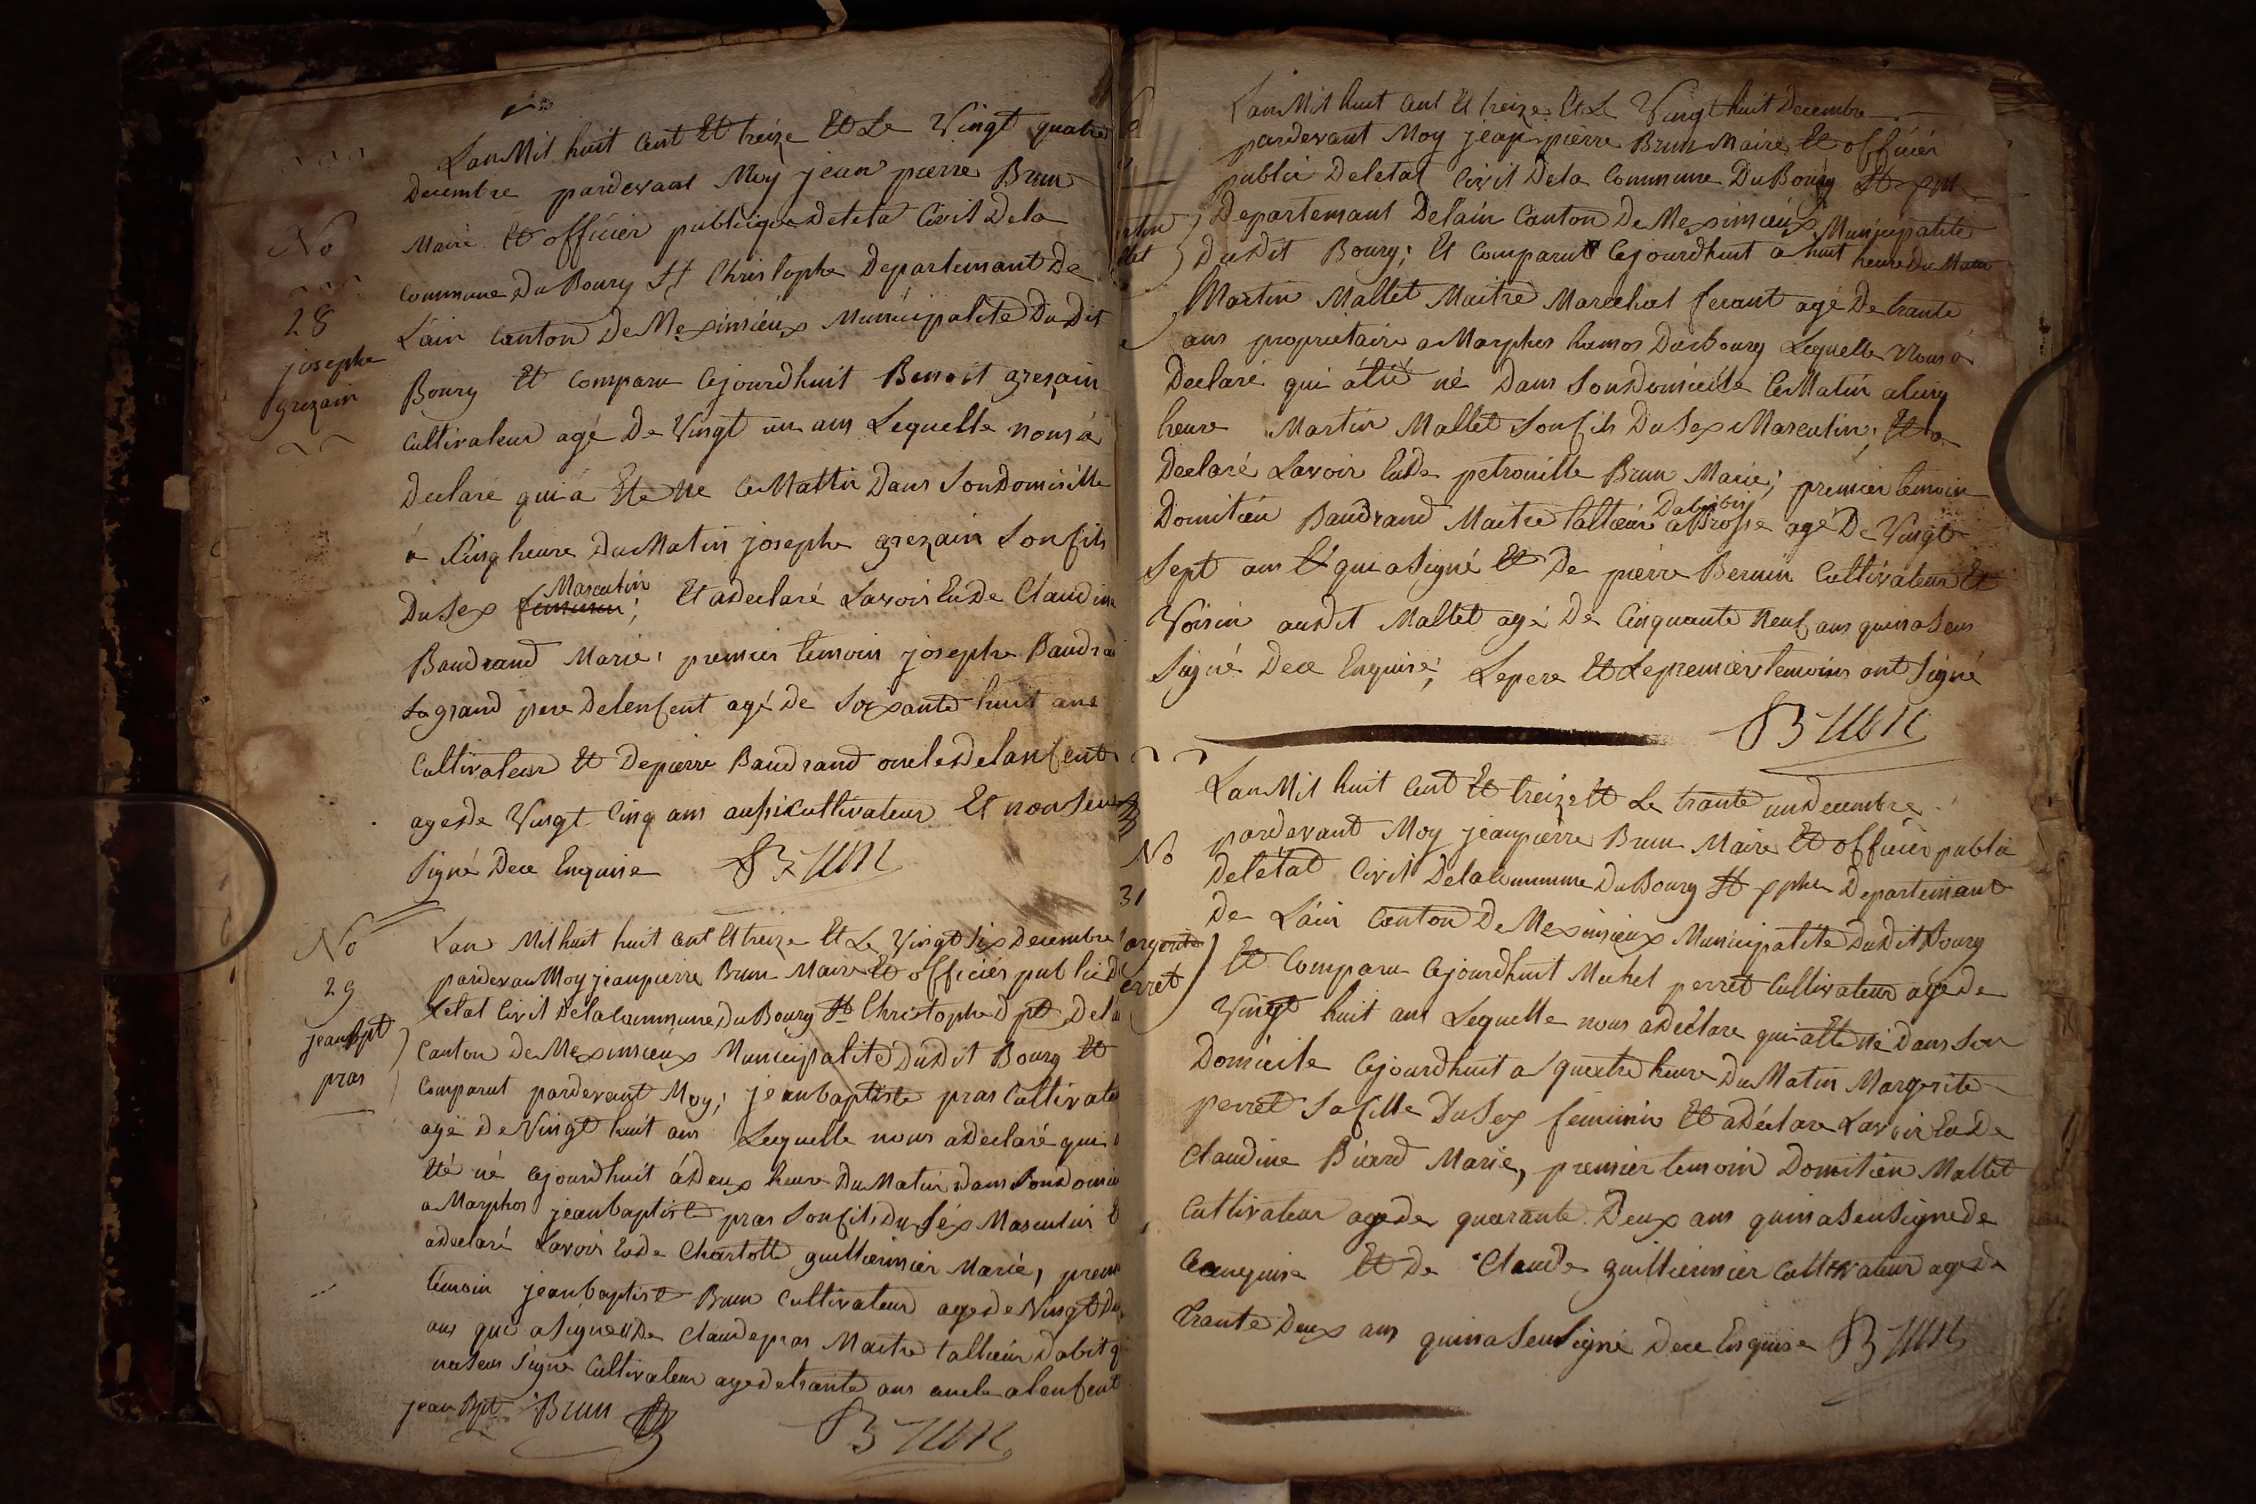 No
28
josephe
grezain
Lan Mil huit Cent Et treize Et Le Vingt quatre
decembre pardevant Moy jean pierre Brun
Maire Et officier publique Deleta Civil Dela
Commune Du Bourg St Christophe Departemant De
Lain Canton De Meximieux Municipalité Du Dit
Bourg Et Comparu Cejourdhuit Benoit grezain
Cultivateur agé De Vingt un ans Lequelle nous á
Declaré qui á Ete Ne Ce Mattin Dans Son Domicille
a Cinq heure Du Matin josephe grezain Son fils
Masculin
Du Sex feminin; Et a declaré Lavoir Eu De Claudine
Baudrand Marie; premier temoin josephe Baudrand
Le grand pere De lenfent agé De Soixante huit ans
Cultivateur Et De pierre Baudrand oncle De lanfent
age De Vingt Cinq ans aussi Cultivateur Et non Seu
Signé Dece Enquise Brun
No
29
jean Bpt
pras
Lan Mil huit huit Cent Et treize Et Le Vingt Six Decembre
pardevan Moy jean pierre Brun Maire Et officier public De
Letat Civil De la Commune Du Bourg St Christophe Dpt Dela
Canton De Meximieux Municipalité Du Dit Bourg Et
Comparut pardevant Moy; jean baptiste pras Cultivate
agé De Vingt huit ans Lequelle nous a declaré qui a
Eté né Cejourdhuit á Deux heure Du Matin Dans Son Domici
a Marphos jean baptiste pras Son fils Du Séx Masculin E
a declaré Lavoir Eu De Charlotte guillierminier Marié, premi
témoin jean baptiste Brun Cultivateur age De Vingt De
ans qui a Signé Et De Claude pras Maitre tallieur Dabit q
na Seu Signe Cultivateur age De trante ans oncle a lenfent
jean Bpt Brun Brun
Lan Mil huit Cent Et treize Et Le Vingt huit Decembre
pardevant Moy jean pierre Brun Maire Et officier
public De letat Civil De la Commune Du Bourg St xph
Departemant De Lain Canton De Meximieux Municipalité
Du Dit Bourg; Et Comparut Cejourdhuit a huit heure Du Matin
Martin Mallet Maitre Marechal ferant agé De trante
ans propriétaire a Marphos hamos Du Bourg Lequelle Nous a
Declaré qui á été né Dans Son Domicile Ce Matin a Cinq
heure Martin Mallet Son fils Du Sex Masculin; Et a
Declaré Lavoir Eu De petronille Brun Marie; premier temoin
Dabit
Domitien Baudrand Maitre Tallieur a Brosse agé De Vingt
Sept ans Et qui a Signé Et De pierre Bernin Cultivateur Et
Voisin audit Mallet agé De Cinquante Neuf ans qui na Seu
Signé Dece Enquise; Le pere Et Le premier temoins ont Signé
Brun
No
31
argerite
erret
Lan Mil huit Cent Et treize Et Le trante un decembre
pardevant Moy jean pierre Brun Maire Et officier public
De létat Civil De la Commune Du Bourg St xphe Departemant
De Láin Canton De Meximieux Municipalité Du Dit Bourg
Et Comparu Cejourdhuit Michel perret Cultivateur age De
Vingt huit ans Lequelle nous a declare qui a Ete né Dans Son
Domicile Cejourdhuit a quatre heure Du Matin Margerite
perret Sa fille Du Sex feminin Et a déclare Lavoir Eu De
Claudine Biard Marie, premier temoin Domitien Mallet
Cultivateur age De quarante Deux ans qui na Seu Signe De
Ce enquise Et De Claude guillierminier Cultivateur age De
trante Deux ans qui na Seu Signé Dece Enquise Brun